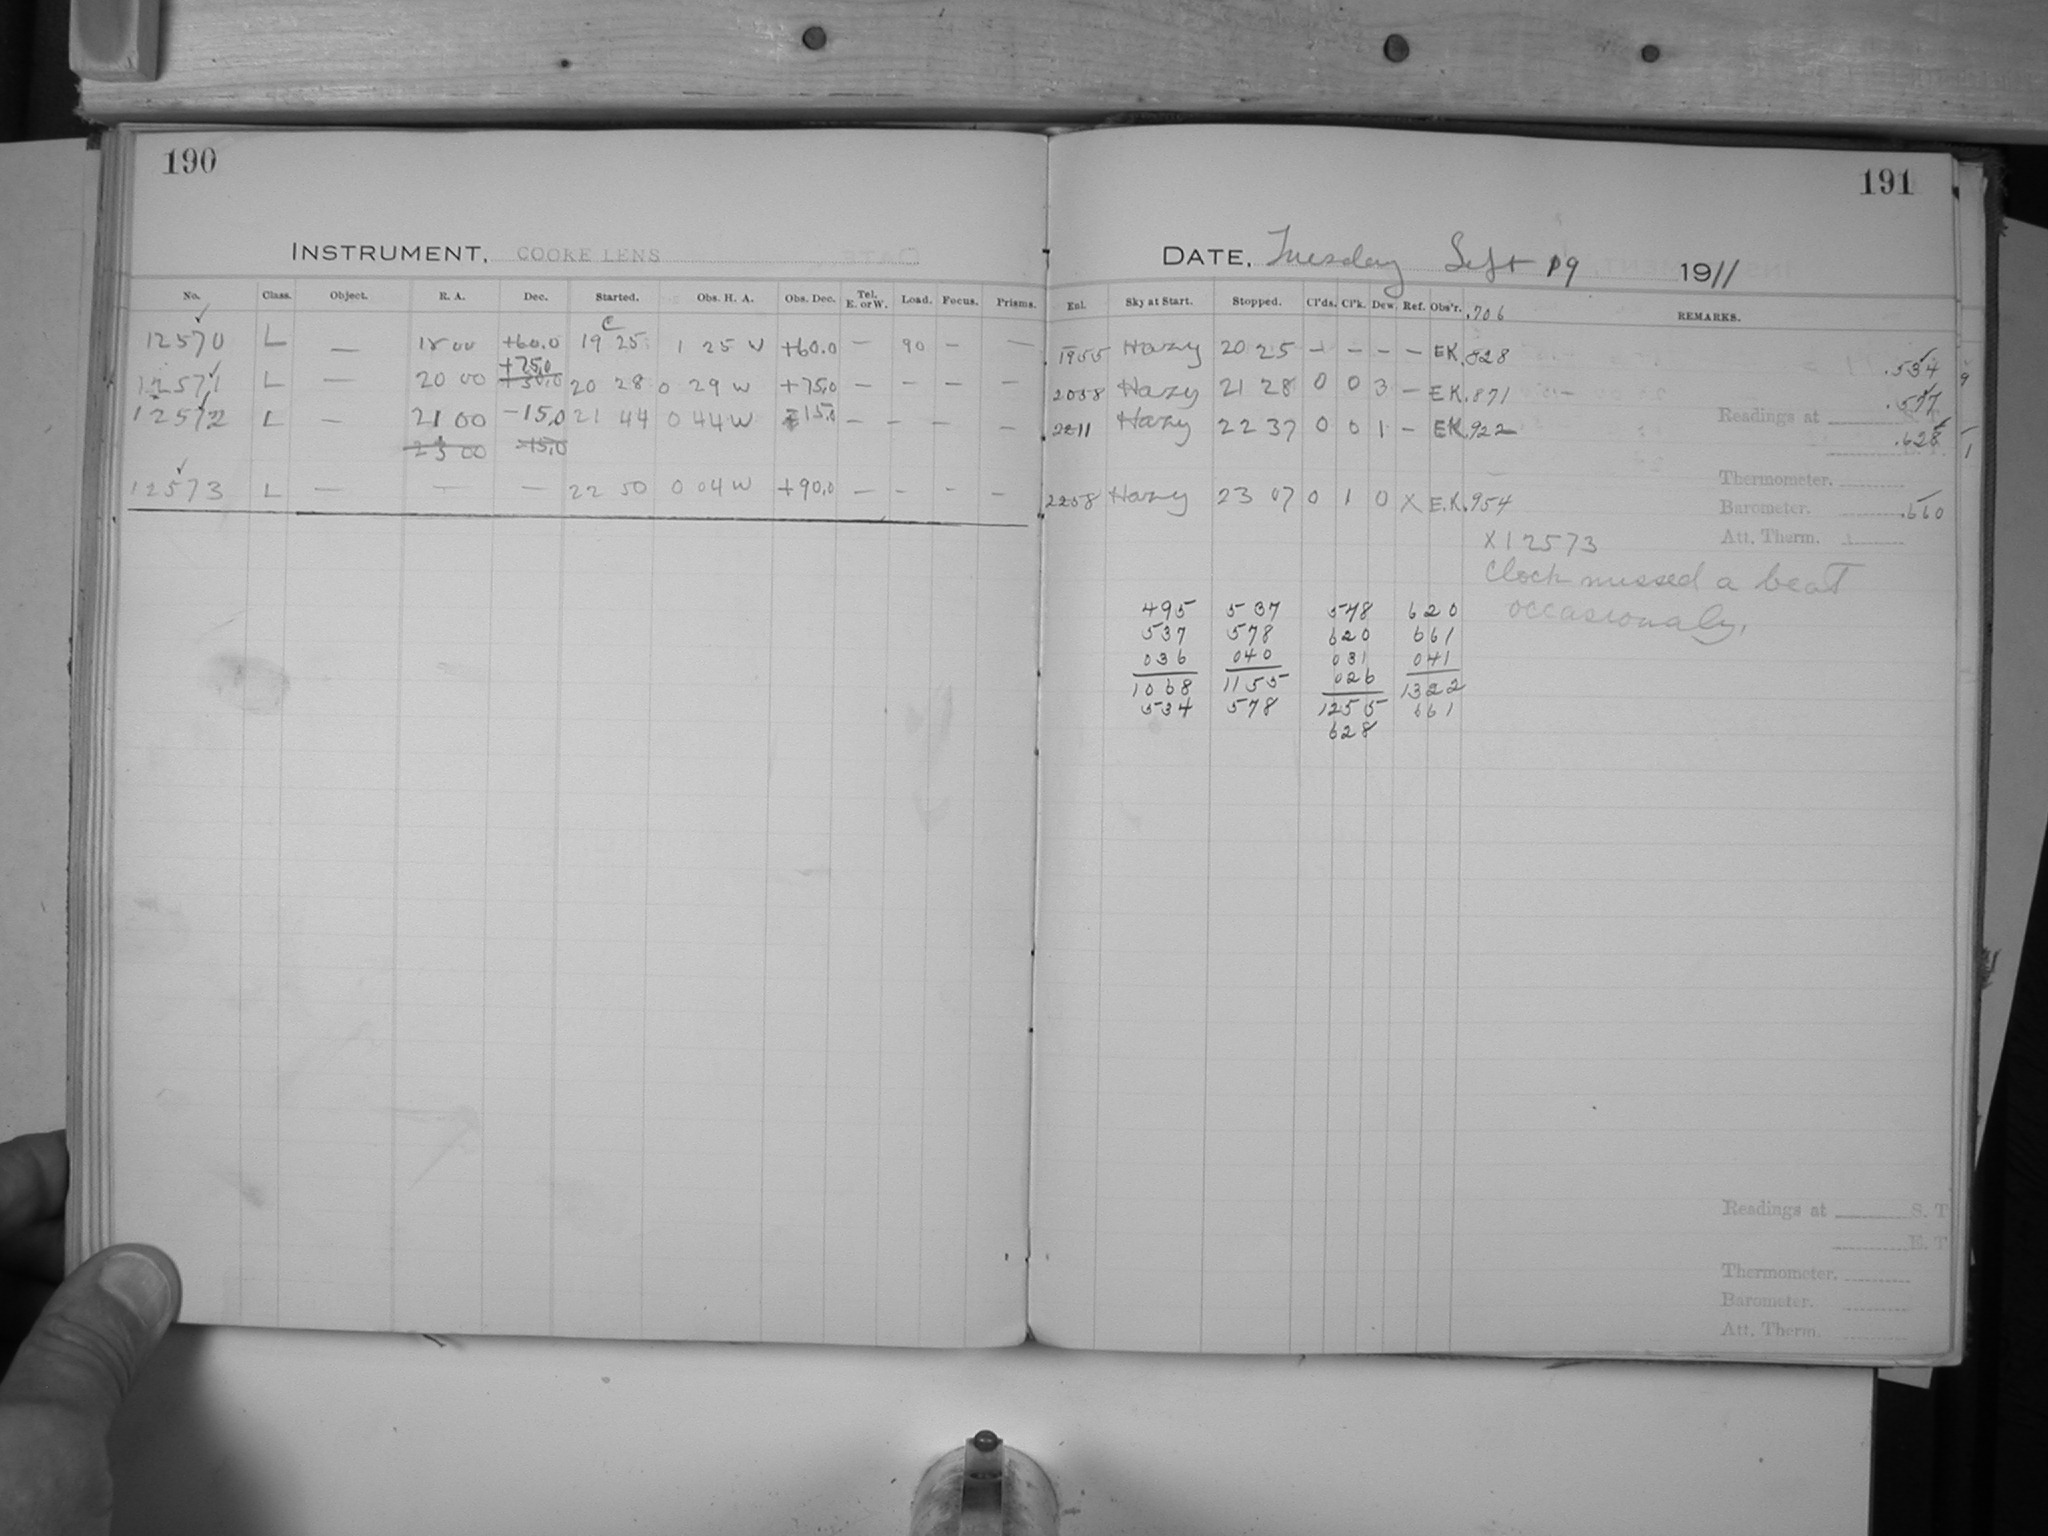 190
INSTRUMENT, COOKE LENS
No. Class. Object. R. A. Dec. Started. Obs. H. A. Obs. Dec. Tel. E. or W. Load. Focus. Prisms.
12570 L — 18 00 +60.0 19 25 1 25 W +60.0 — 90 — —
+75.0
12571 L — 20 00 +30.0 20 28 0 29 W +75.0 — — — —
12572 L — 21 00 -15.0 21 44 0 44 W -15.0 — — — —
23 00 -15.0
12573 L — — — 22 50 0 04 W +90.0 — — — —
191
DATE, Tuesday Sept 19 1911
Enl. Sky at Start. Stopped. Cl'ds. Cl'k. Dew. Ref. Obs'r. .706 REMARKS.
1955 Hazy 20 25 — — — — EK .828 .534
2058 Hazy 21 28 0 0 3 — EK .871 .577
Readings at
2211 Hazy 22 37 0 0 1 — EK .922 .628
Thermometer.
2258 Hazy 23 07 0 1 0 X E.K. .954
Barometer. .660
X12573 Att. Therm.
Clock missed a beat
occasionaly.
495 537 578 620
537 578 620 661
036 040 031 041
1068 1155 026 1322
534 578 1255 661
628
Readings at S. T
E. T
Thermometer.
Barometer.
Att. Therm.